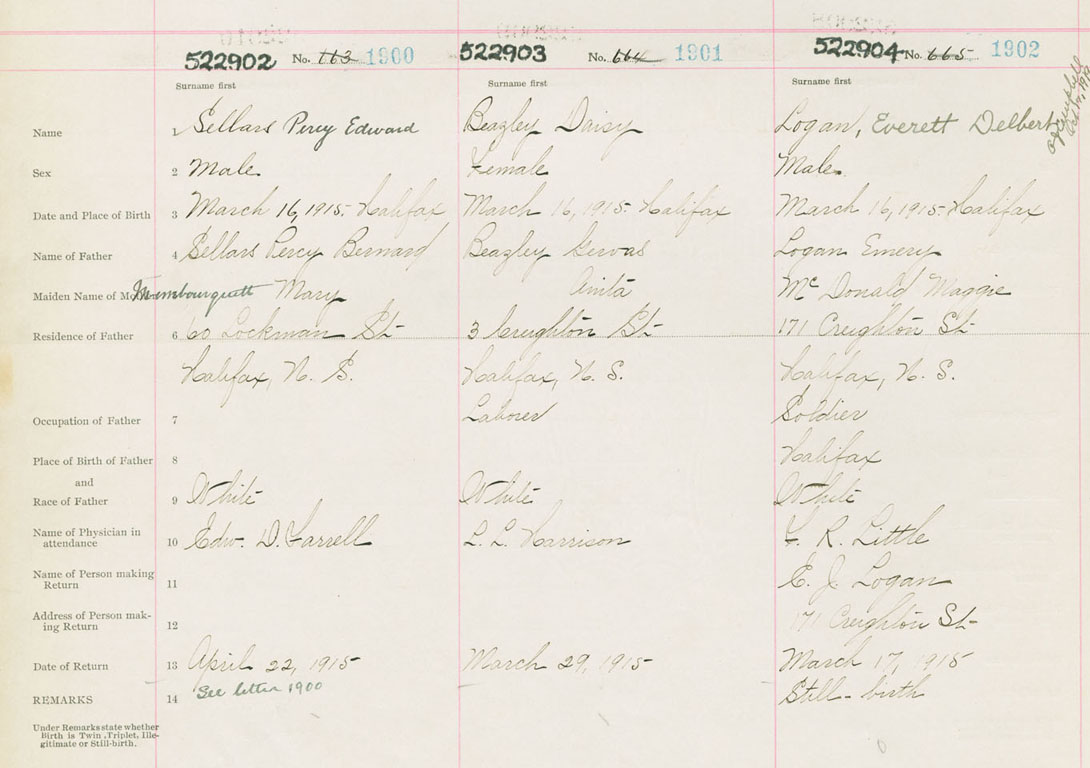 522902 No. 663 1900
522903 No. 664 1901
522904 No. 665 1902
Surname first Surname first Surname first
Name 1 Sellars Percy Edward Beazley Daisy Logan, Everett Delbert
Sex 2 Male Female Male
Date and Place of Birth 3 March 16, 1915. Halifax March 16, 1915. Halifax March 16, 1915. Halifax
Name of Father 4 Sellars Percy Bernard Beazley Gervas Logan Emery
Maiden Name of Mary Anita McDonald Maggie
Residence of Father 6 60 Lockman St. 3 Creighton St. 171 Creighton St.
Halifax, N. S. Halifax, N. S. Halifax, N. S.
Occupation of Father 7 Laborer Soldier
Place of Birth of Father 8 Halifax
and
Race of Father 9 White White White
Name of Physician in
attendance 10 Edw. D. Farrell L. L. Harrison F. R. Little
Name of Person making
Return 11 E. J. Logan
Address of Person mak-
ing Return 12 171 Creighton St.
Date of Return 13 April 22, 1915 March 29, 1915 March 17, 1915
REMARKS 14 See letter 1900 Still-birth
Under Remarks state whether
Birth is Twin, Triplet, Ille-
gitimate or Still-birth.